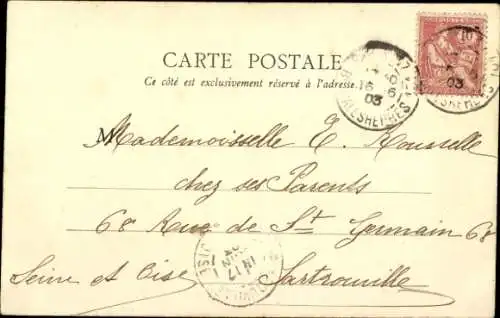 CARTE POSTALE
Ce côté est exclusivement réservé à l'adresse
Mademoiselle E. Rousselle
chez ses Parents
68 Rue de St Germain 68
Seine et Oise Sartrouville
10
16
6
03
MALESHERBES
17
03